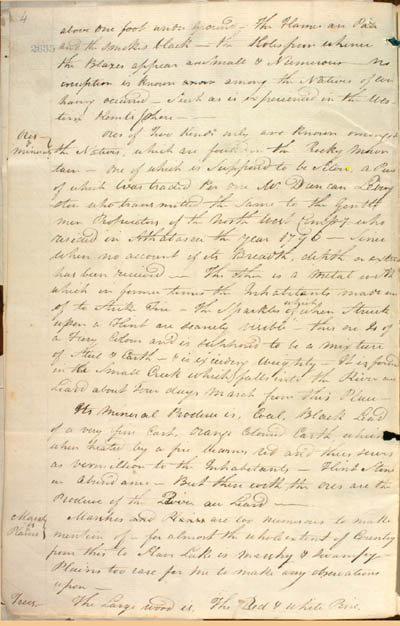 4
2635
above one foot under ground – The Flames are Pale
and the smokes black – the Holes from whence
the Blazes appear are small & Numerous – no
eruption is known among the Natives of
having occurred – Such as is experienced in the Wes-
tern Hemisphere –
Ores &
Minerals
Ores of Two kinds only are known amongst
the Natives, which are found in the Rocky Moun-
tain – One of which is Supposed to be Silver, a Piece
of which was traded Per one Mr. Duncan Living
ston who transmitted the same to the Gentle
men Proprietors of the North West Comp.y who
resided in Athabasca the year 1796 – Since
when no account of its Breadth, depth or extent
has been received – The other is a metal with
which in former times the Inhabitants made use
of to Strike Fire – The Sparkles of which when Struck
upon a Flint are scarcely visible – this one is of
a Grey Colour and is supposed to be a mixture
of Steel & Earth – & is exceeding weighty – It is found
in the Small Creek which falls into the River au
Liard about Four days March from this Place –
Its Mineral Produce is, Coal, Black Lead
of a very fine Cast, Orange Coloured Earth which
when heated by a fire becomes Red and thus serves
as vermillion to the Inhabitants – Flint Stone
in abundance – But these with the Ores are the
Produce of the River au Liard –
Marshes &
Plains
Marshes and Plains are too numerous to make
mention of – for almost the whole extent of Country
from this to Slave Lake is marshy & Swampy –
Plains too rare for me to make any observations
upon –
Trees
The Large wood is The Red & White Pine,